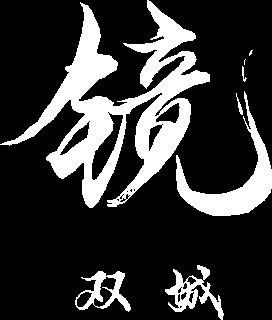 镜
双城